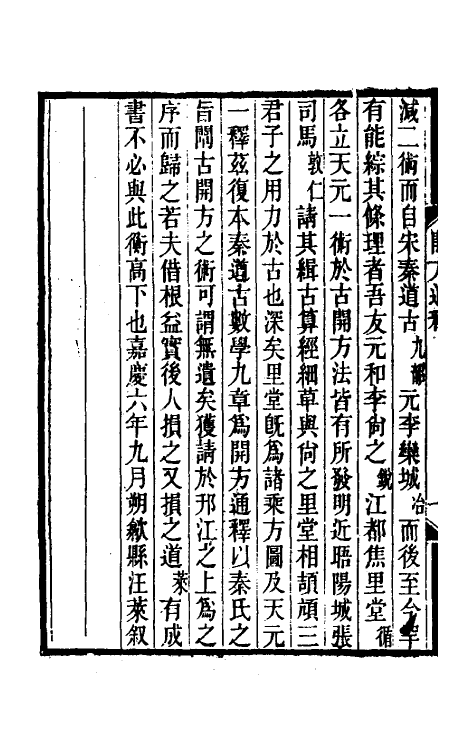 減二術而自宋秦道古九韶元李欒城冶而後至今罕
有能綜其條理者吾友元和李尙之銳江都焦里堂循
各立天元一術於古開方法皆有所發明近晤陽城張
司馬敦仁請其緝古算經細草與尙之里堂相頡頏三
君子之用力於古也深矣里堂旣爲諸乘方圖及天元
一釋茲復本秦道古數學九章爲開方通釋以秦氏之
旨闢古開方之術可謂無遺矣獲請於邗江之上爲之
序而歸之若夫借根益實後人損之又損之道萊有成
書不必與此衡高下也嘉慶六年九月朔歙縣汪萊叙
開方通釋
一